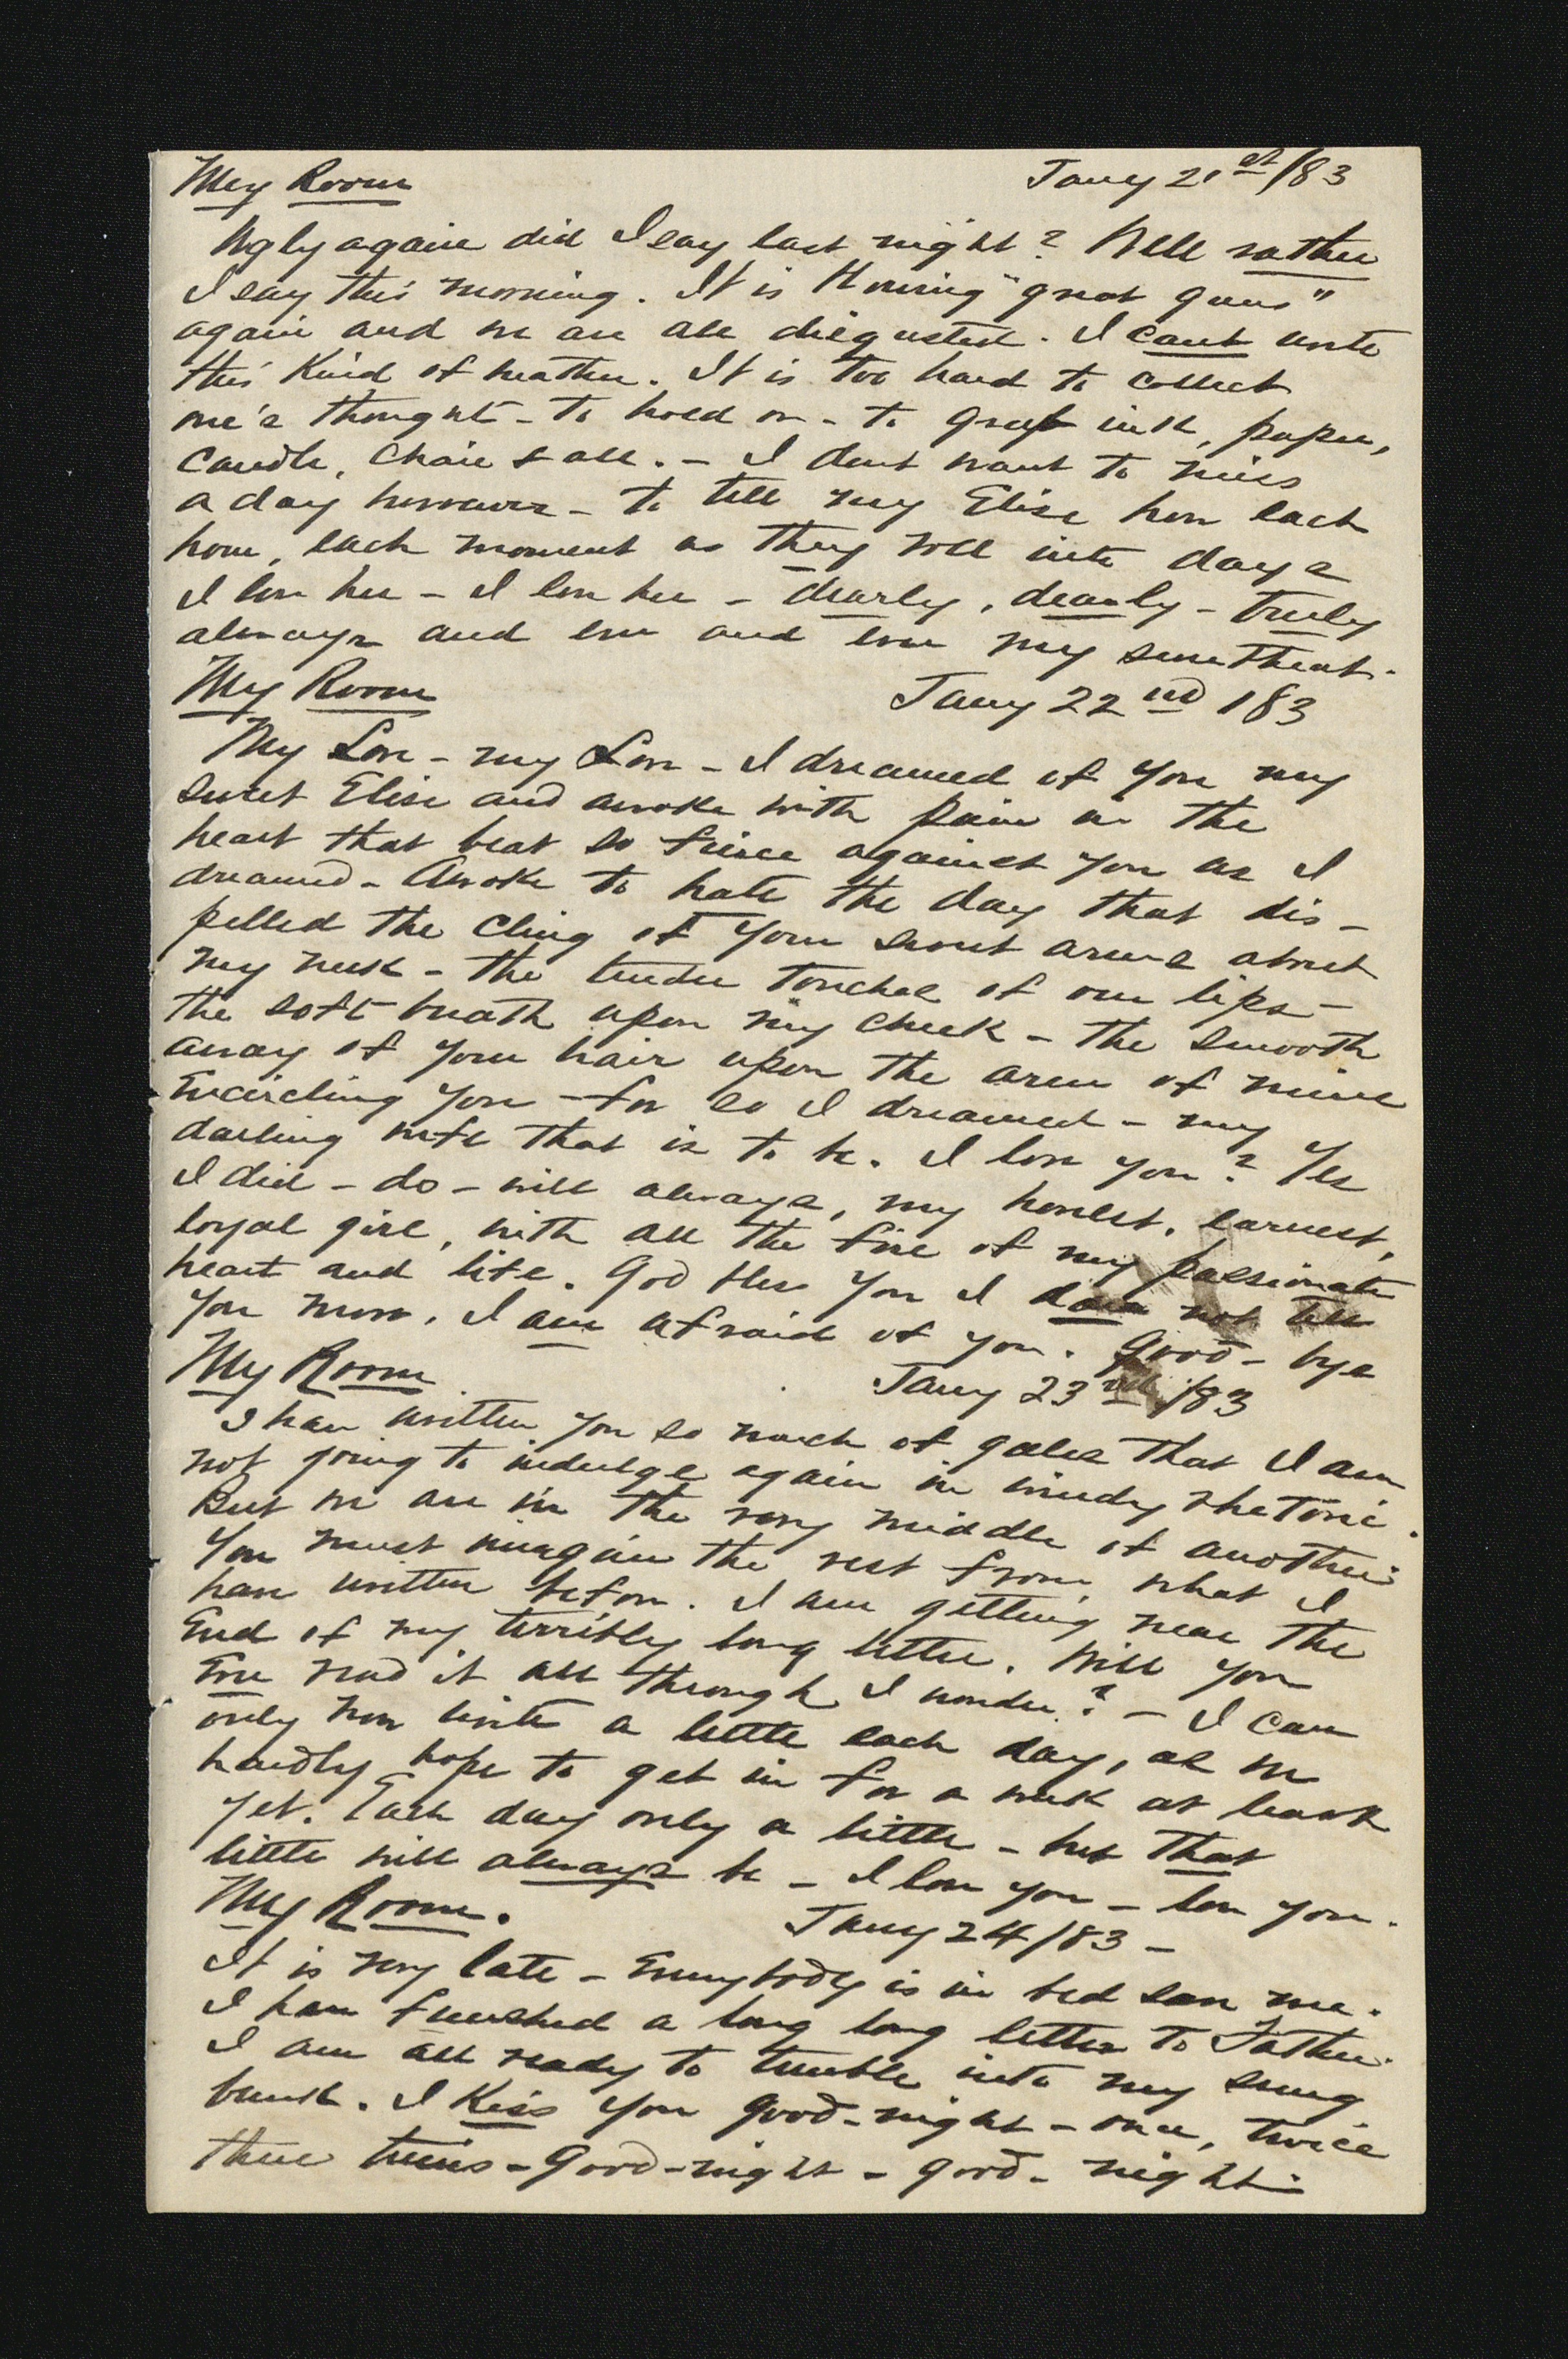 My Room Jany 21st/83
Ugly again did I say last night? Well rather
I say this morning. It is blowing "great guns"
again and we are all disgusted. I cant write
this kind of weather. It is too hard to collect
one's thought - to hold on - to grasp ink, paper,
candle, chair & all. - I dont want to miss
a day however - to tell my Elise how each
hour, each moment as they roll into days
I love her - I love her - dearly, dearly - truly
always and ever and ever my sweetheart.
My Room Jany 22nd 183
My Love - my Love - I dreamed of you my
sweet Elise and awoke with pain in the
heart that beat so fierce against you as I
dreamed - Awoke to hate the day that dis-
pelled the cling of your sweet arms about
my neck - the tender touches of our lips -
the soft breath upon my cheek - the smooth
array of your hair upon the arm of mine
encircling you - for so I dreamed - my
darling wife that is to be. I love you? Yes
I did - do - will always, my honest, earnest,
loyal girl, with all the fire of my passionate
heart and life. God bless you I dare not tell
you more. I am afraid of you. Good-bye
My Room Jany 23rd/83
I have written you so much of gales that I am
not going to indulge again in windy rhetoric.
But we are in the very middle of another.
You must imagine the rest from what I
have written before. I am getting near the
end of my terribly long letter. Will you
ever read it all through I wonder? - I can
only now write a little each day, as we
hardly hope to get in for a week at least
yet. Each day only a little - but that
little will always be - I love you - love you.
My Room. Jany 24/83 -
It is very late - Everybody is in bed save me.
I have finished a long long letter to Father.
I am all ready to tumble into my snug
bunk. I kiss you good-night - once, twice
three times - Good-night - good-night.